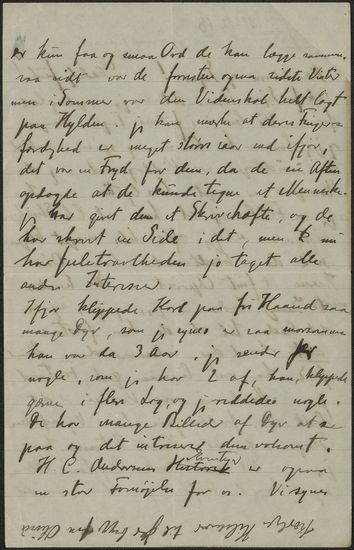 er kun faa og smaa Ord de kan lægge sammen.
saa vidt var de forresten ogsaa sidste Vinter
men i Sommer var den Videnskab helt lagt
paa Hylden. jeg kan mærke at deres Finger-
færdighed er meget større iaar end ifjor,
det var en Fryd for dem, da de en Aften
opdagde at de kunde tegne et Menneske.
jeg har givet dem et Skrivehæfte, og de
har skrevet en Side i det, men nu
har Juletravlheden jo taget alle
andre Interesser.
Ifjor klippede Karl paa fri Haand saa
mange Dyr, som jeg synes er saa morsomme
han var da 3 Aar, jeg sender
nogle, som jeg har 2 af, han klippede
gerne i flere Lag, og jeg reddede nogle.
De har mange Billeder af Dyr at se
paa og det interesserer dem voldsomt.
H. C. Andersens Eventyr er ogsaa
en stor Fornøjelse for os. Vi synes
Kærlige Hilsener til jer alle fra